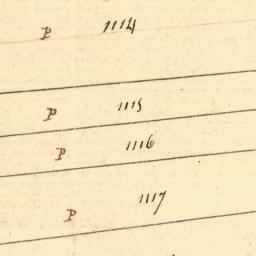 P 1114
P 1115
P 1116
P 1117